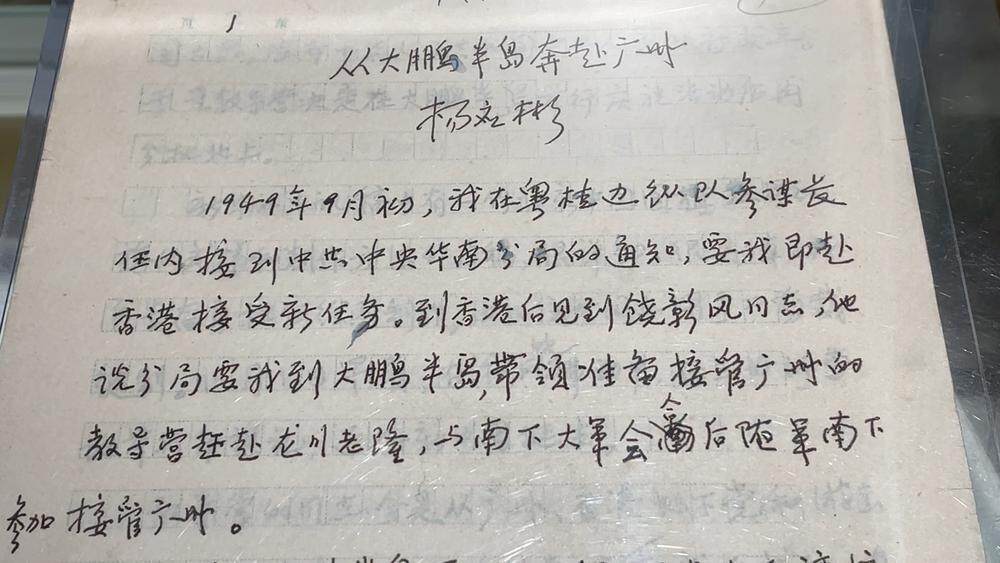 从大鹏半岛奔赴广州
杨应彬
1949年9月初，我在粤桂边纵队参谋长
任内接到中共中央华南分局的通知，要我即赴
香港接受新任务。到香港后见到饶彰风同志，他
说分局要我到大鹏半岛，带领准备接管广州的
教导营赶赴龙川老隆，与南下大军会合后随军南下
参加接管广州。